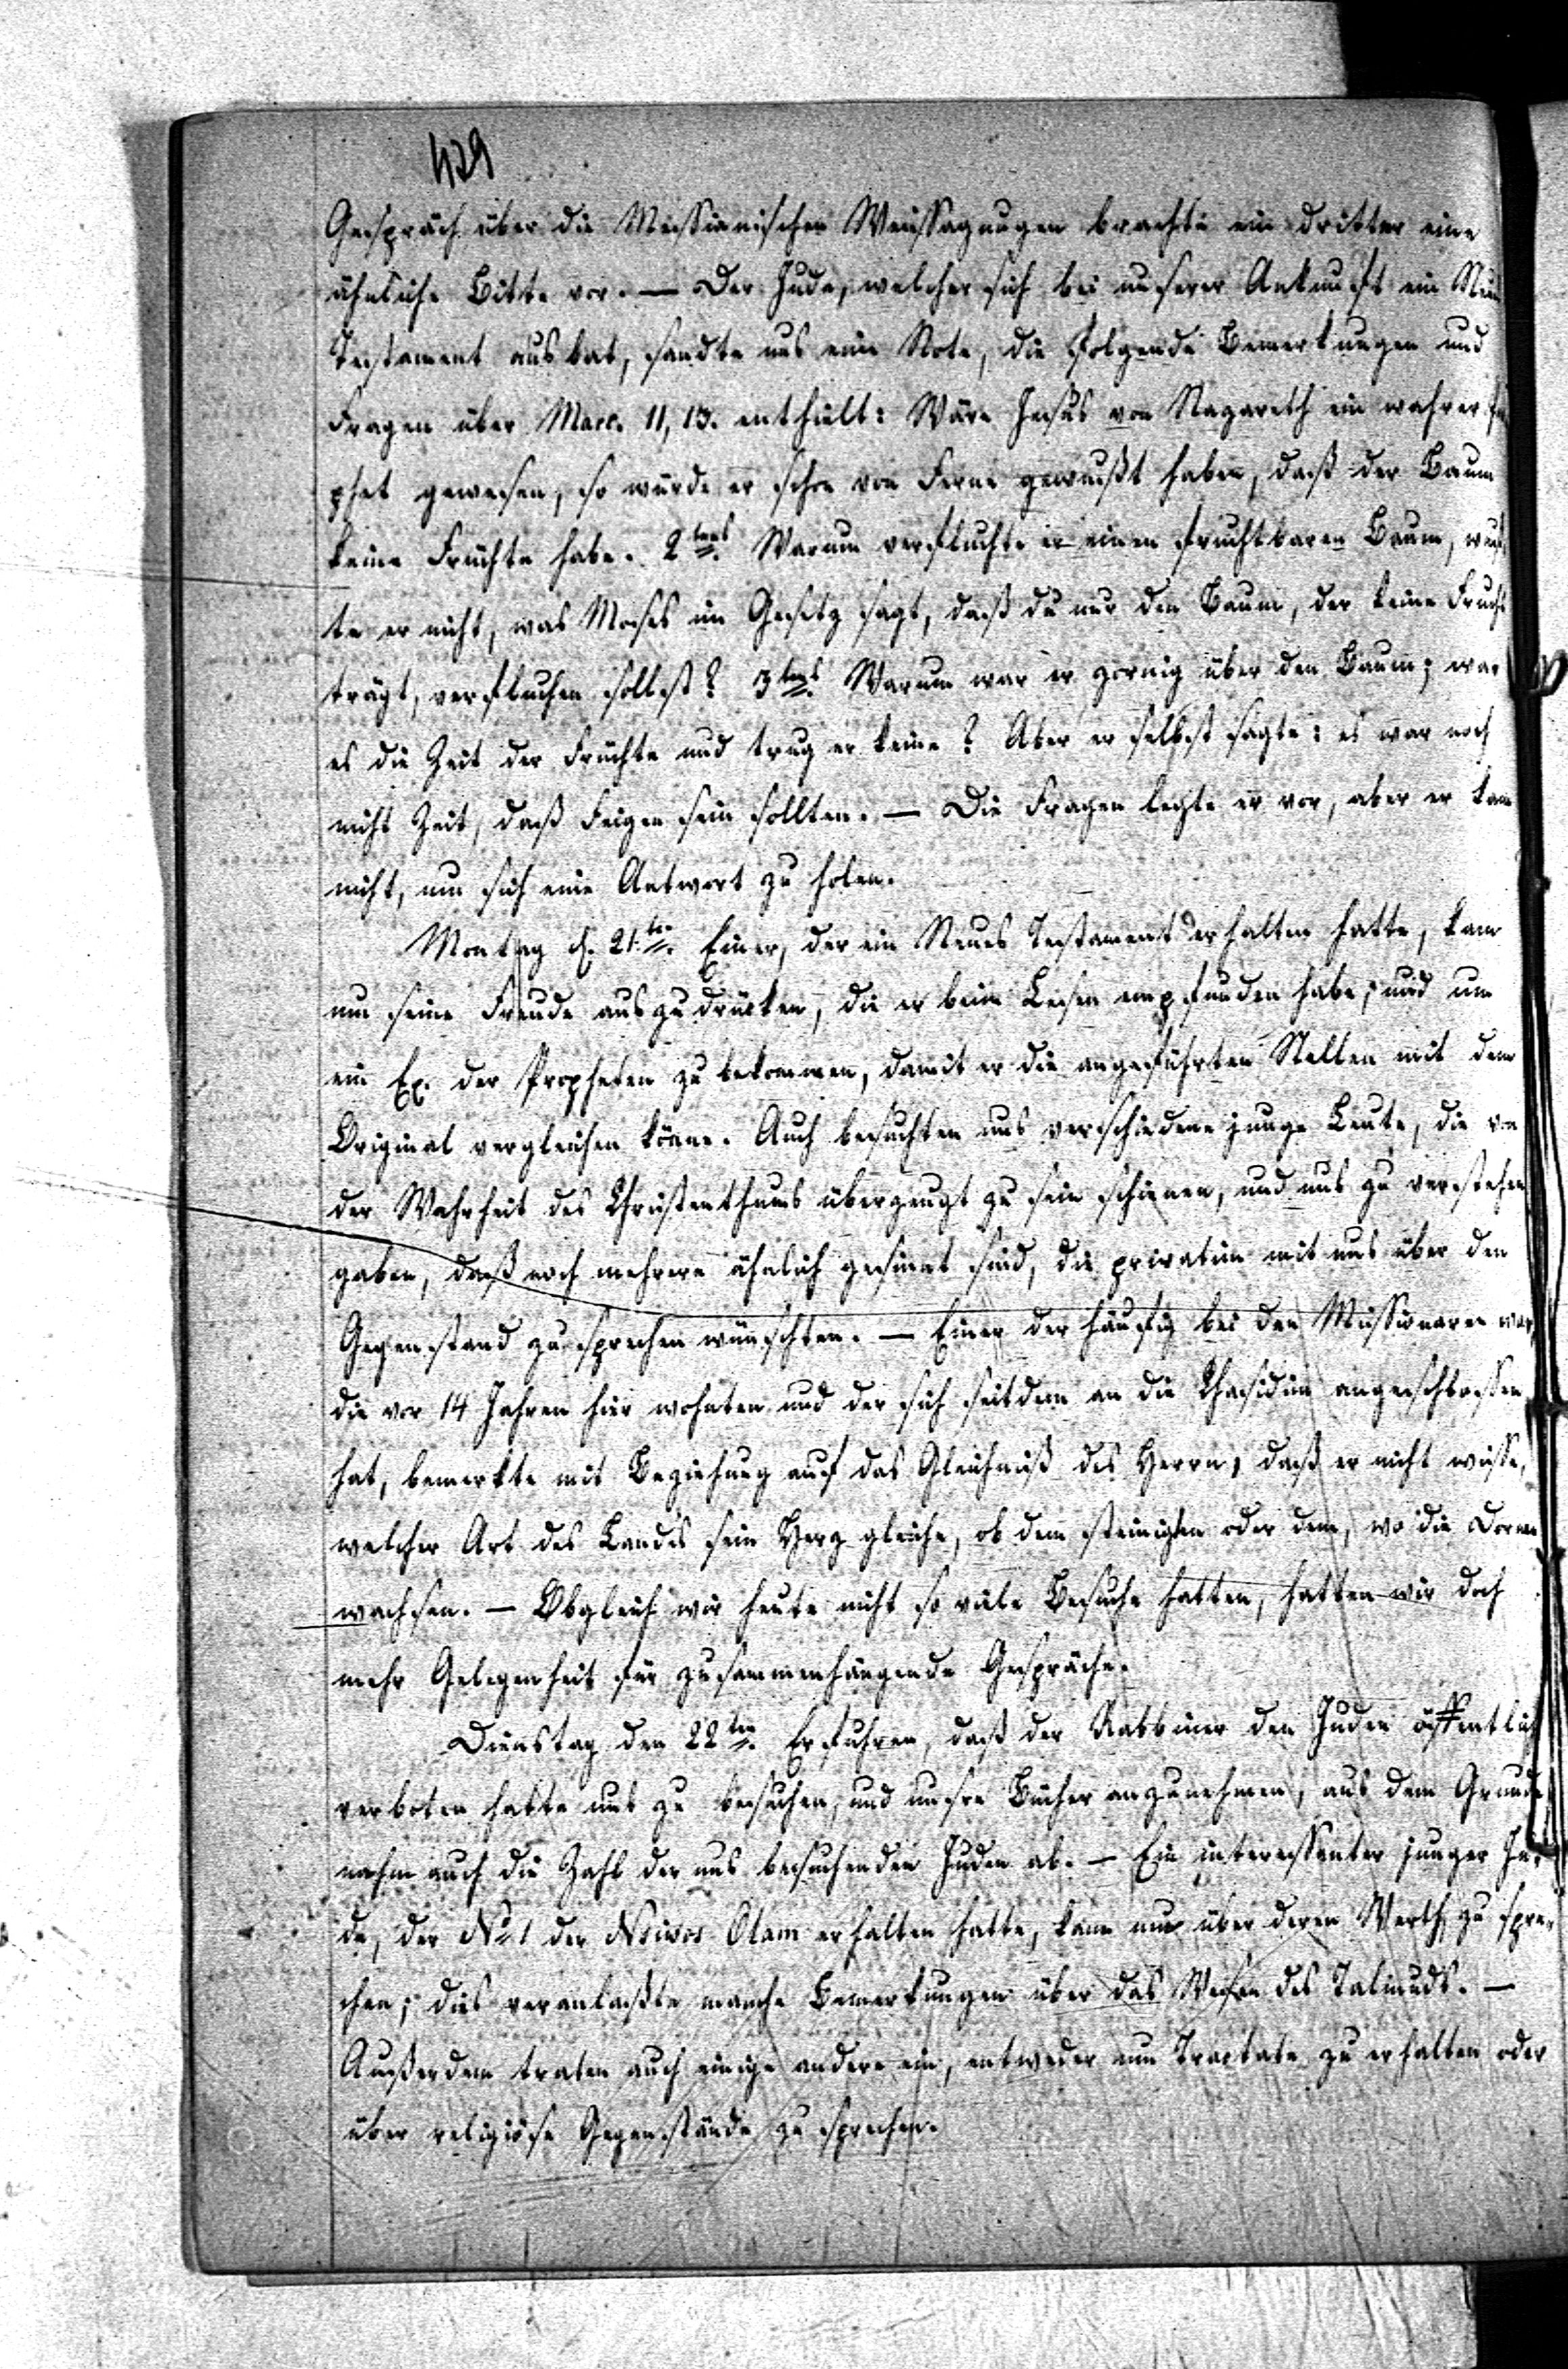 429
Gespräch über die Messianischen Weissagungen brachte ein dritter eine
ähnliche Bitte vor. — Der Jude, welcher sich bei unserer Ankunft ein Neu
Testament ausbat, sandte uns eine Note, die folgende Bemerkungen und
Fragen über Marc. 11, 13. enthielt: Wäre Jesus von Nazareth ein wahrer
phet gewesen, so würde er schon von Ferne gewußt haben, daß der Baum
keine Früchte habe. 2tens. Warum verfluchte er einen fruchtbaren Baum, wuß,
te er nicht, was Moses im Gesetz sagt, daß du nur den Baum, der keine Frucht
trägt, verfluchen sollst? 3tens. Warum war er zornig über den Baum; war
es die Zeit der Früchte und trug er keine? Aber er selbst sagte: es war noch
nicht Zeit, daß Feigen sein sollten. — Die Fragen legte er vor, aber er kam
nicht, um sich eine Antwort zu holen.
Montag d. 21.ten. Einer, der ein Neues Testament erhalten hatte, kam
um seine Freude auszudrücken, die er beim Lesen empfunden habe, und um
ein Ex. der Propheten zu bekommen, damit er die angeführten Stellen mit dem
Original vergleichen könne. Auch besuchten uns verschiedene junge Leute, die von
der Wahrheit des Christenthums überzeugt zu sein schienen, und uns zu verstehen
gaben, daß noch mehrere ähnlich gesinnt sind, die privatim mit uns über den
Gegenstand zu sprechen wünschten. — Einer der häufig bei den Missionaren war,
die vor 14 Jahren hier wohnten und der sich seitdem an die Chasidim angeschlossen
hat, bemerkte mit Beziehung auf das Gleichniß des Herrn, daß er nicht wisse,
welcher Art des Landes sein Herz gleiche, ob dem steinigten oder dem, wo die Dornen
wachsen. — Obgleich wir heute nicht so viele Besuche hatten, hatten wir doch
mehr Gelegenheit für zusammenhängende Gespräche.
Dienstag den 22ten. Erfuhren, daß der Rabbiner den Juden öffentlich
verboten hatte uns zu besuchen, und unsre Bücher anzunehmen, aus dem Grunde
nahm auch die Zahl der uns besuchenden Juden ab. — Ein interessanter junger Ju,
de, der No 1 der Nsiwos Olam erhalten hatte, kam um über deren Werth zu spre,
chen; dies veranlaßte manche Bemerkungen über das Wesen des Talmuds. —
Außerdem traten auch einige andere ein, entweder um Tractate zu erhalten oder
über religiöse Gegenstände zu sprechen.